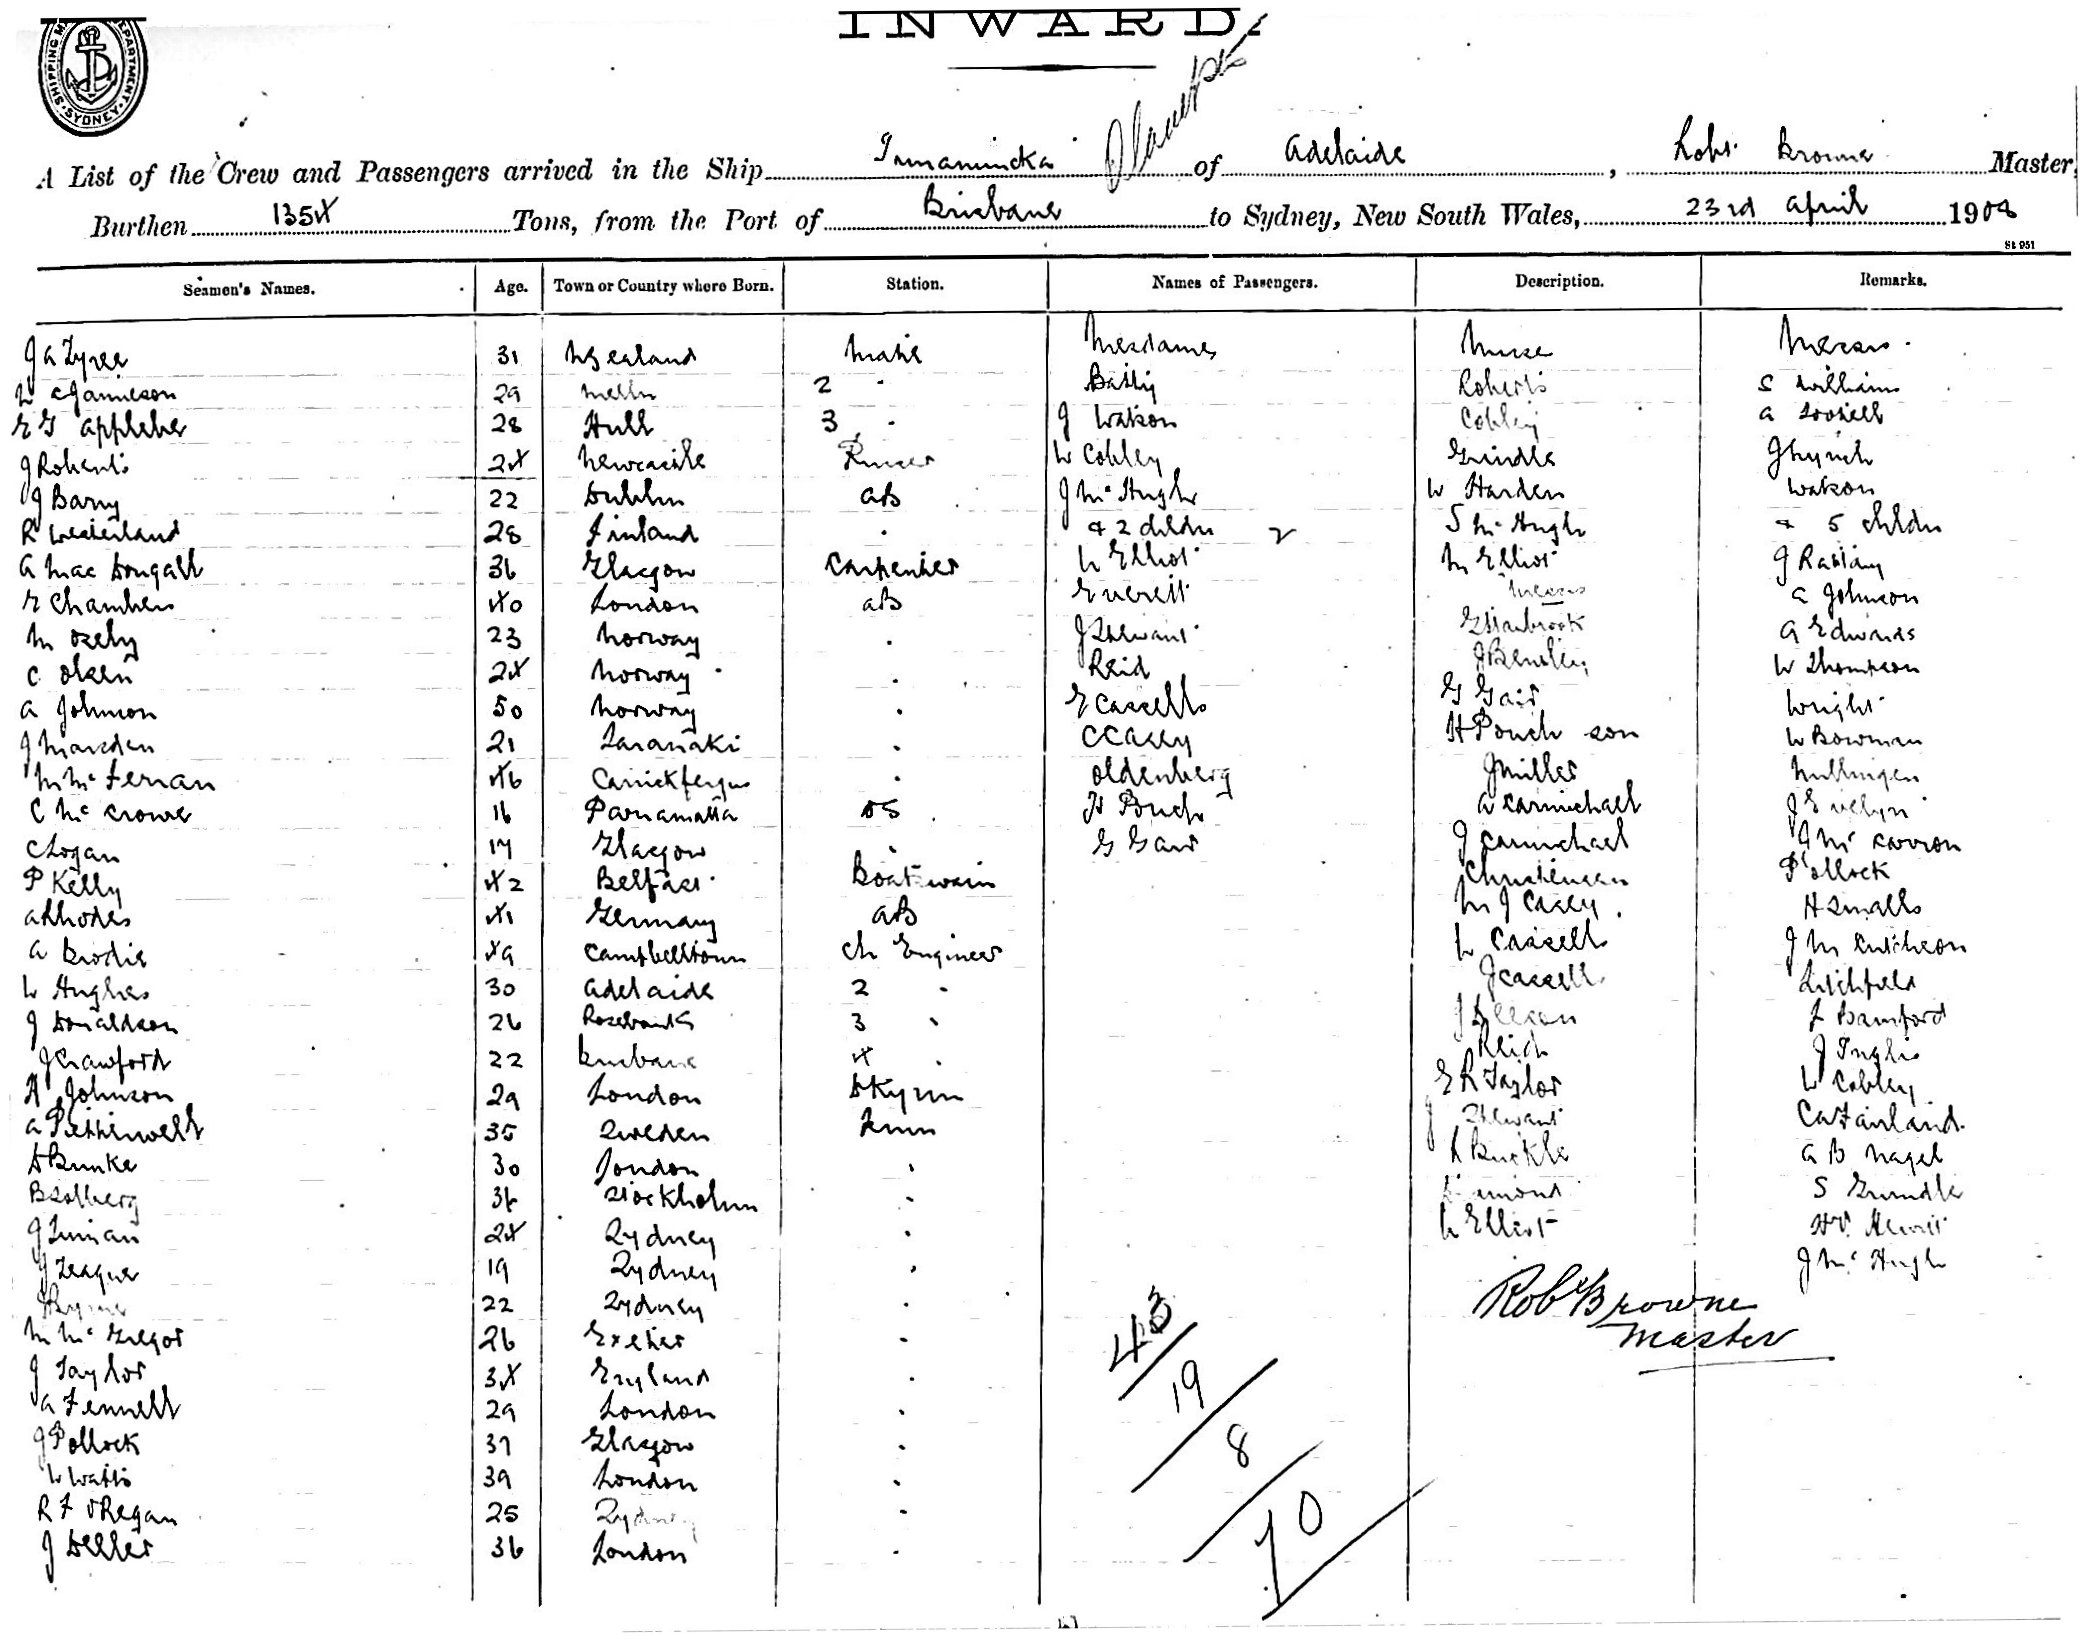 INWARD.
SHIPPING M PARTMENT. SYDNEY
A List of the Crew and Passengers arrived in the Ship Innamincka of Adelaide, Robt. Browne Master,
Burthen 1354 Tons, from the Port of Brisbane to Sydney, New South Wales, 23rd April 190
St 951
Seamen's Names. Age. Town or Country where Born. Station. Names of Passengers. Description. Remarks.
J A Tyree 31 N Zealand Mate Mesdames Nurse Messrs.
W C Jamieson 29 Melbn 2 " Batty Roberts S Williams
E G Appleber 28 Hull 3 " J Watson Cobley A
J Roberts 24 Newcastle W Cobley Grindle J Lynch
J Barry 22 Dublin AB J McHugh W Harden Watson
R Westerland 28 Finland " & 2 childn 2 S McHugh & 5 childn
A Mac Dougall 36 Glasgow Carpenter W Elliot M Elliot J
E Chambers 40 London AB Everett Messrs A Johnson
M 23 Norway " J Stewart G Starbrook A Edwards
C Olsen 24 Norway " Reid J Bensley W Thompson
A Johnson 50 Norway " E Cassells G Gair Wright
J Marsden 21 Taranaki " C Casey H Pouch son W Bowman
M McFerran 46 Carrickfergus " Oldenberg J Miller
C McCrowe 16 Parramatta OS H Pouch A Carmichael J Evelyn
C Logan 17 Glasgow " G Gair J Carmichael J Mc
P Kelly 42 Belfast Boatswain Christensen Pollock
A Rhodes 41 Germany AB M J Casey H Smalls
A Brodie 49 Campbelltown Ch Engineer W Cassells J McCutcheon
W Hughes 30 Adelaide 2 " J Cassells Litchfield
J Donaldson 26 Rosebank 3 " J F Bamford
J Crawford 22 Brisbane 4 " Reid J Inglis
A Johnson 29 London Dkymn E R Taylor W Cobley
A 35 Sweden Frmn J Stewart C A Fairland
D Bunke 30 London " R Buckle A B Nagel
B Solberg 36 Stockholm " Diamond S Grundle
J 24 Sydney " W Elliot H V Hewitt
J Teague 19 Sydney " J McHugh
J Byrne 22 Sydney "
M McGregor 26 Exeter " Robt Browne
J Taylor 34 England " Master
A Fennell 29 London "
J Pollock 37 Glasgow "
W Watts 39 London "
R F O'Regan 25 Sydney "
J Deller 36 London "
43
19
8
70